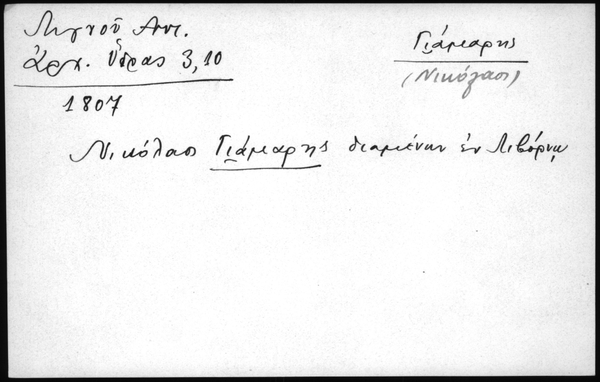 Λιγνοῦ Αντ.
Ἀρχ. Ὕδρας 3,10
1807
Γιάμαρης
(Νικόλαος)
Νικόλαος Γιάμαρης διαμένων ἐν Λιβόρνῳ